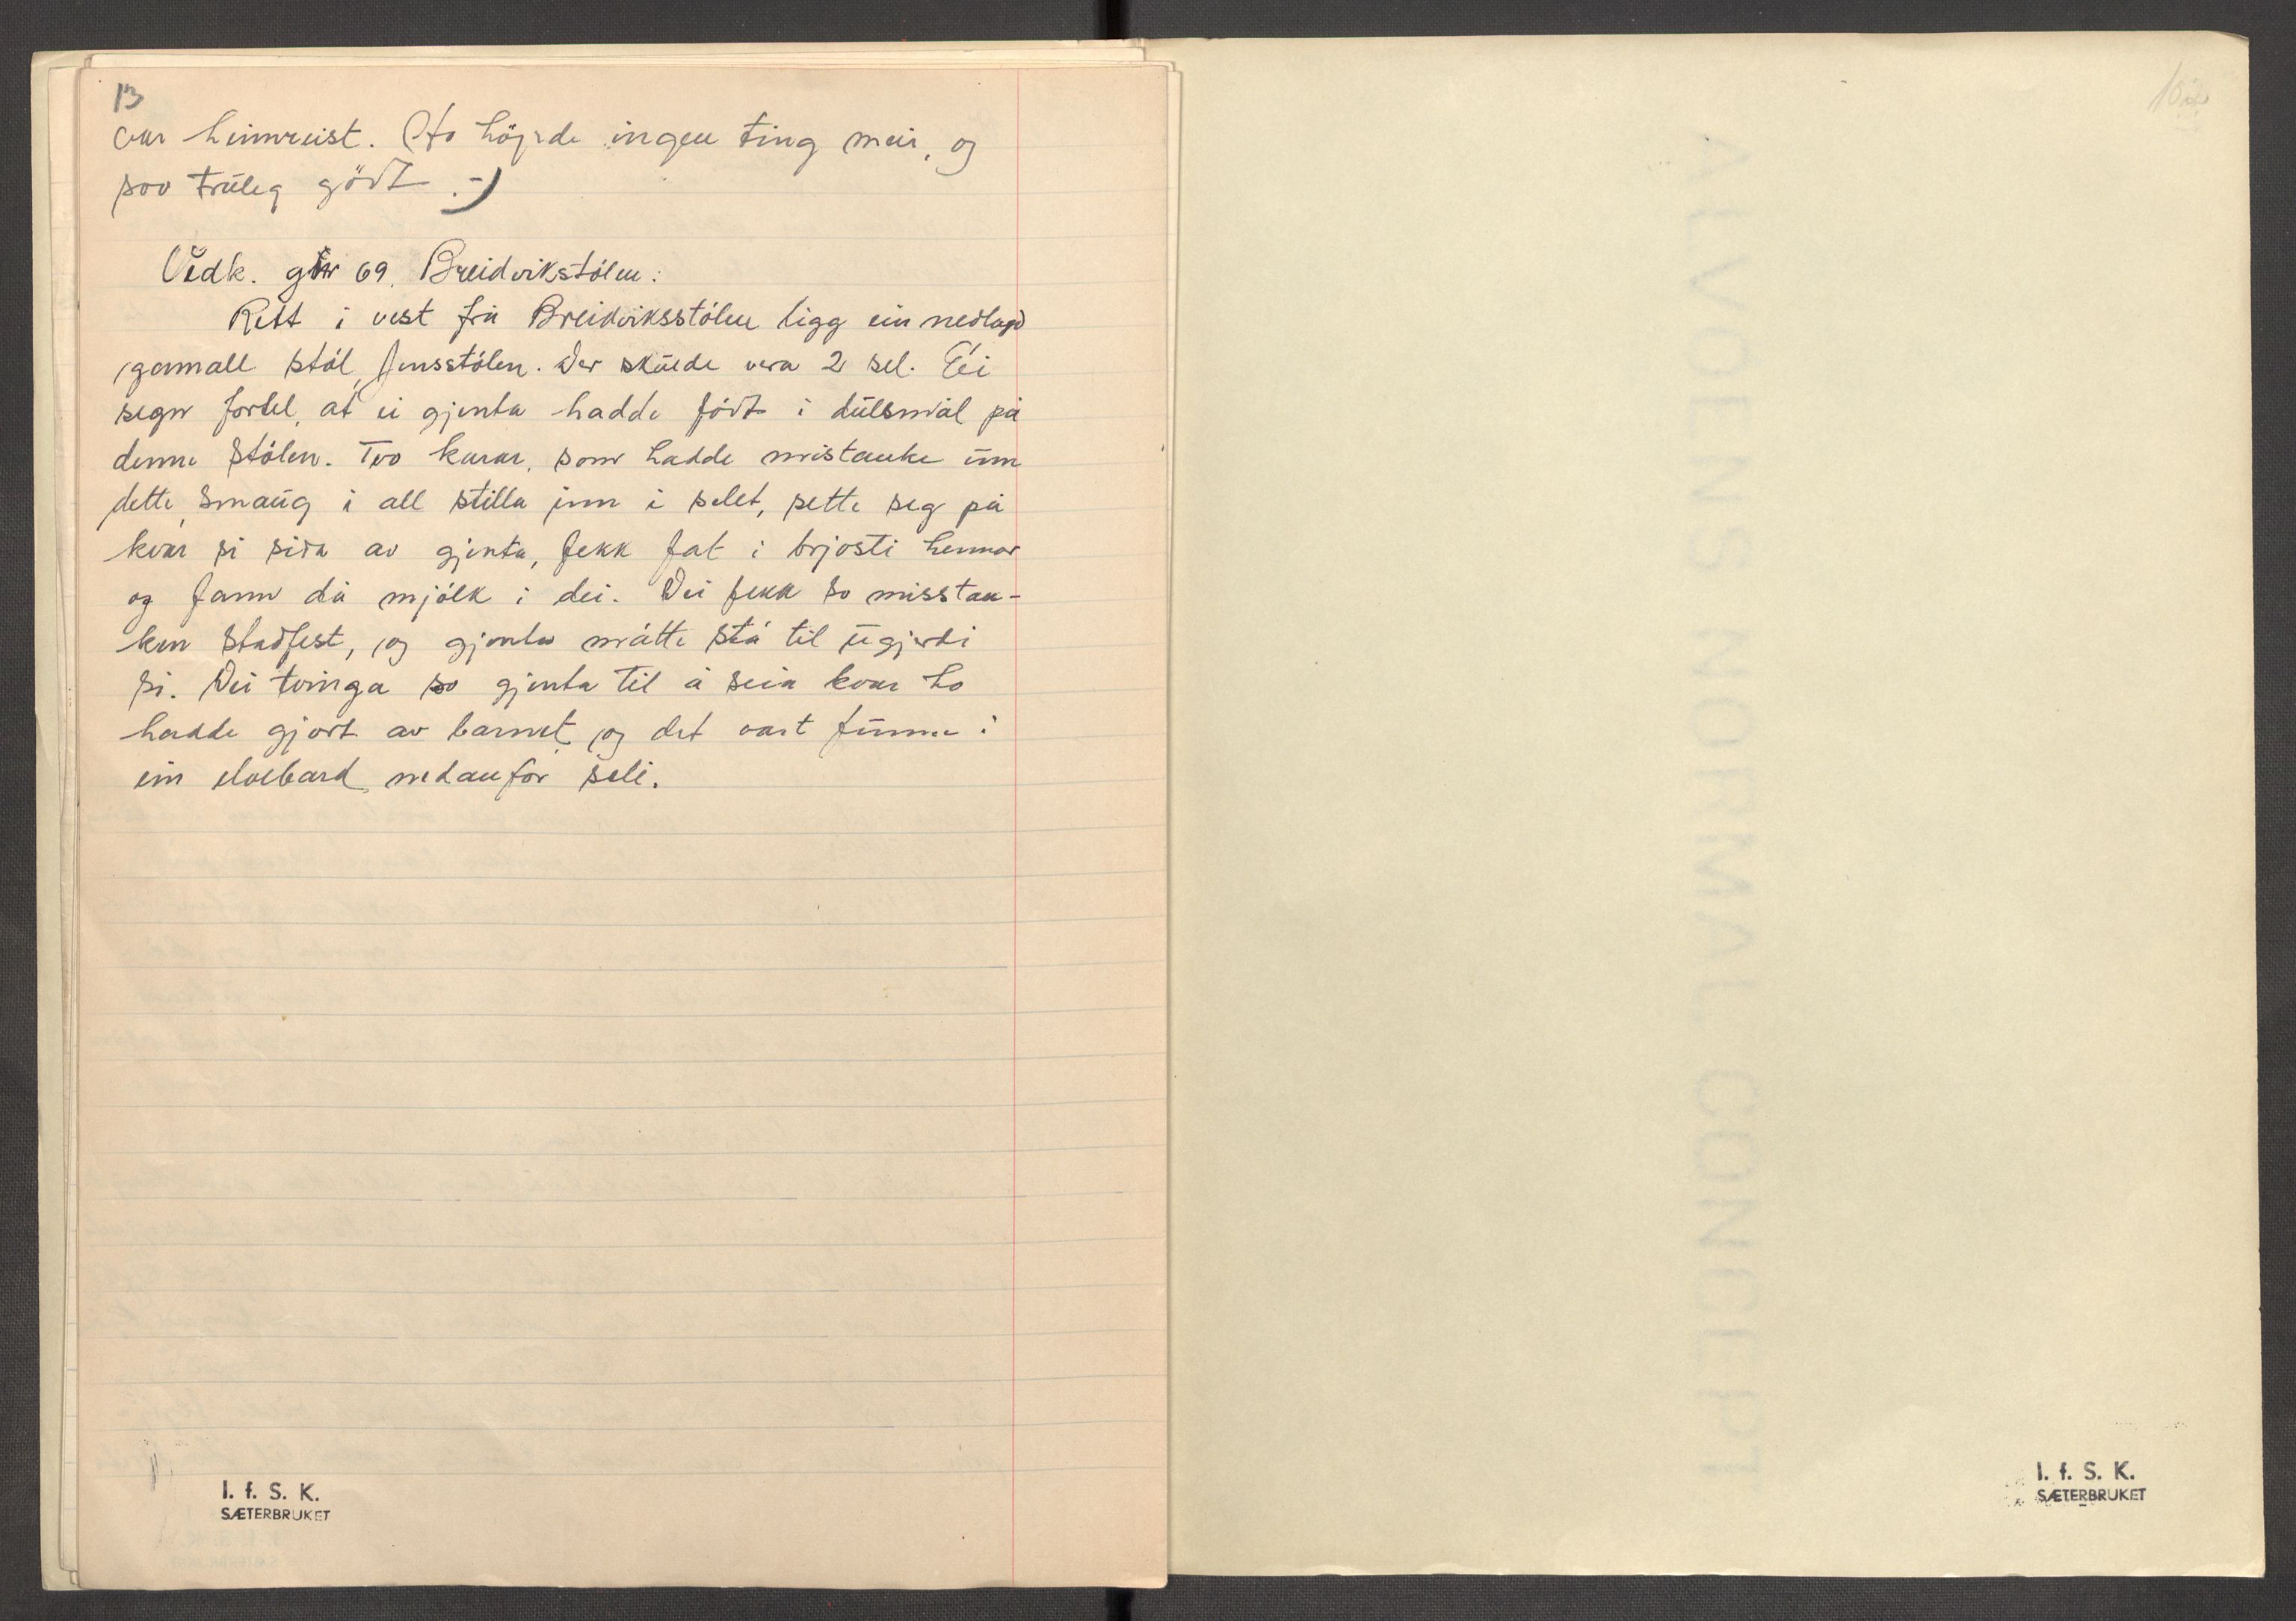 13
var heimreist. Ho höyrde ingen ting meir, og
sov truleg godt .-)
Vedk. gnr 69. Breidvikstólen:
Rett i vest frå Breidviksstólen ligg ein nedlagd
gamall stól, Jensstólen. Der skulde vera 2 sel. Ei
segn fortel, at ei gjenta hadde födt i dulsmål på
denne stólen. Tvo karar, som hadde mistanke um
dette, smaug i all stilla inn i selet, sette seg på
kvar si sida av gjenta, fekk fat i brjosti hennar
og fann då mjólk i dei. Dei fekk so misstan-
ken stadfest, og gjenta måtte stå til ugjerdi
si. Dei tvinga so gjenta til å seia kvar ho
hadde gjort av barnet, og det vart funne i
ein elvebard nedanfor seli.
I. f. S. K.
SÆTERBRUKET
102
ALVØENS NORMAL CONCEPT
I. f. S. K.
SÆTERBRUKET